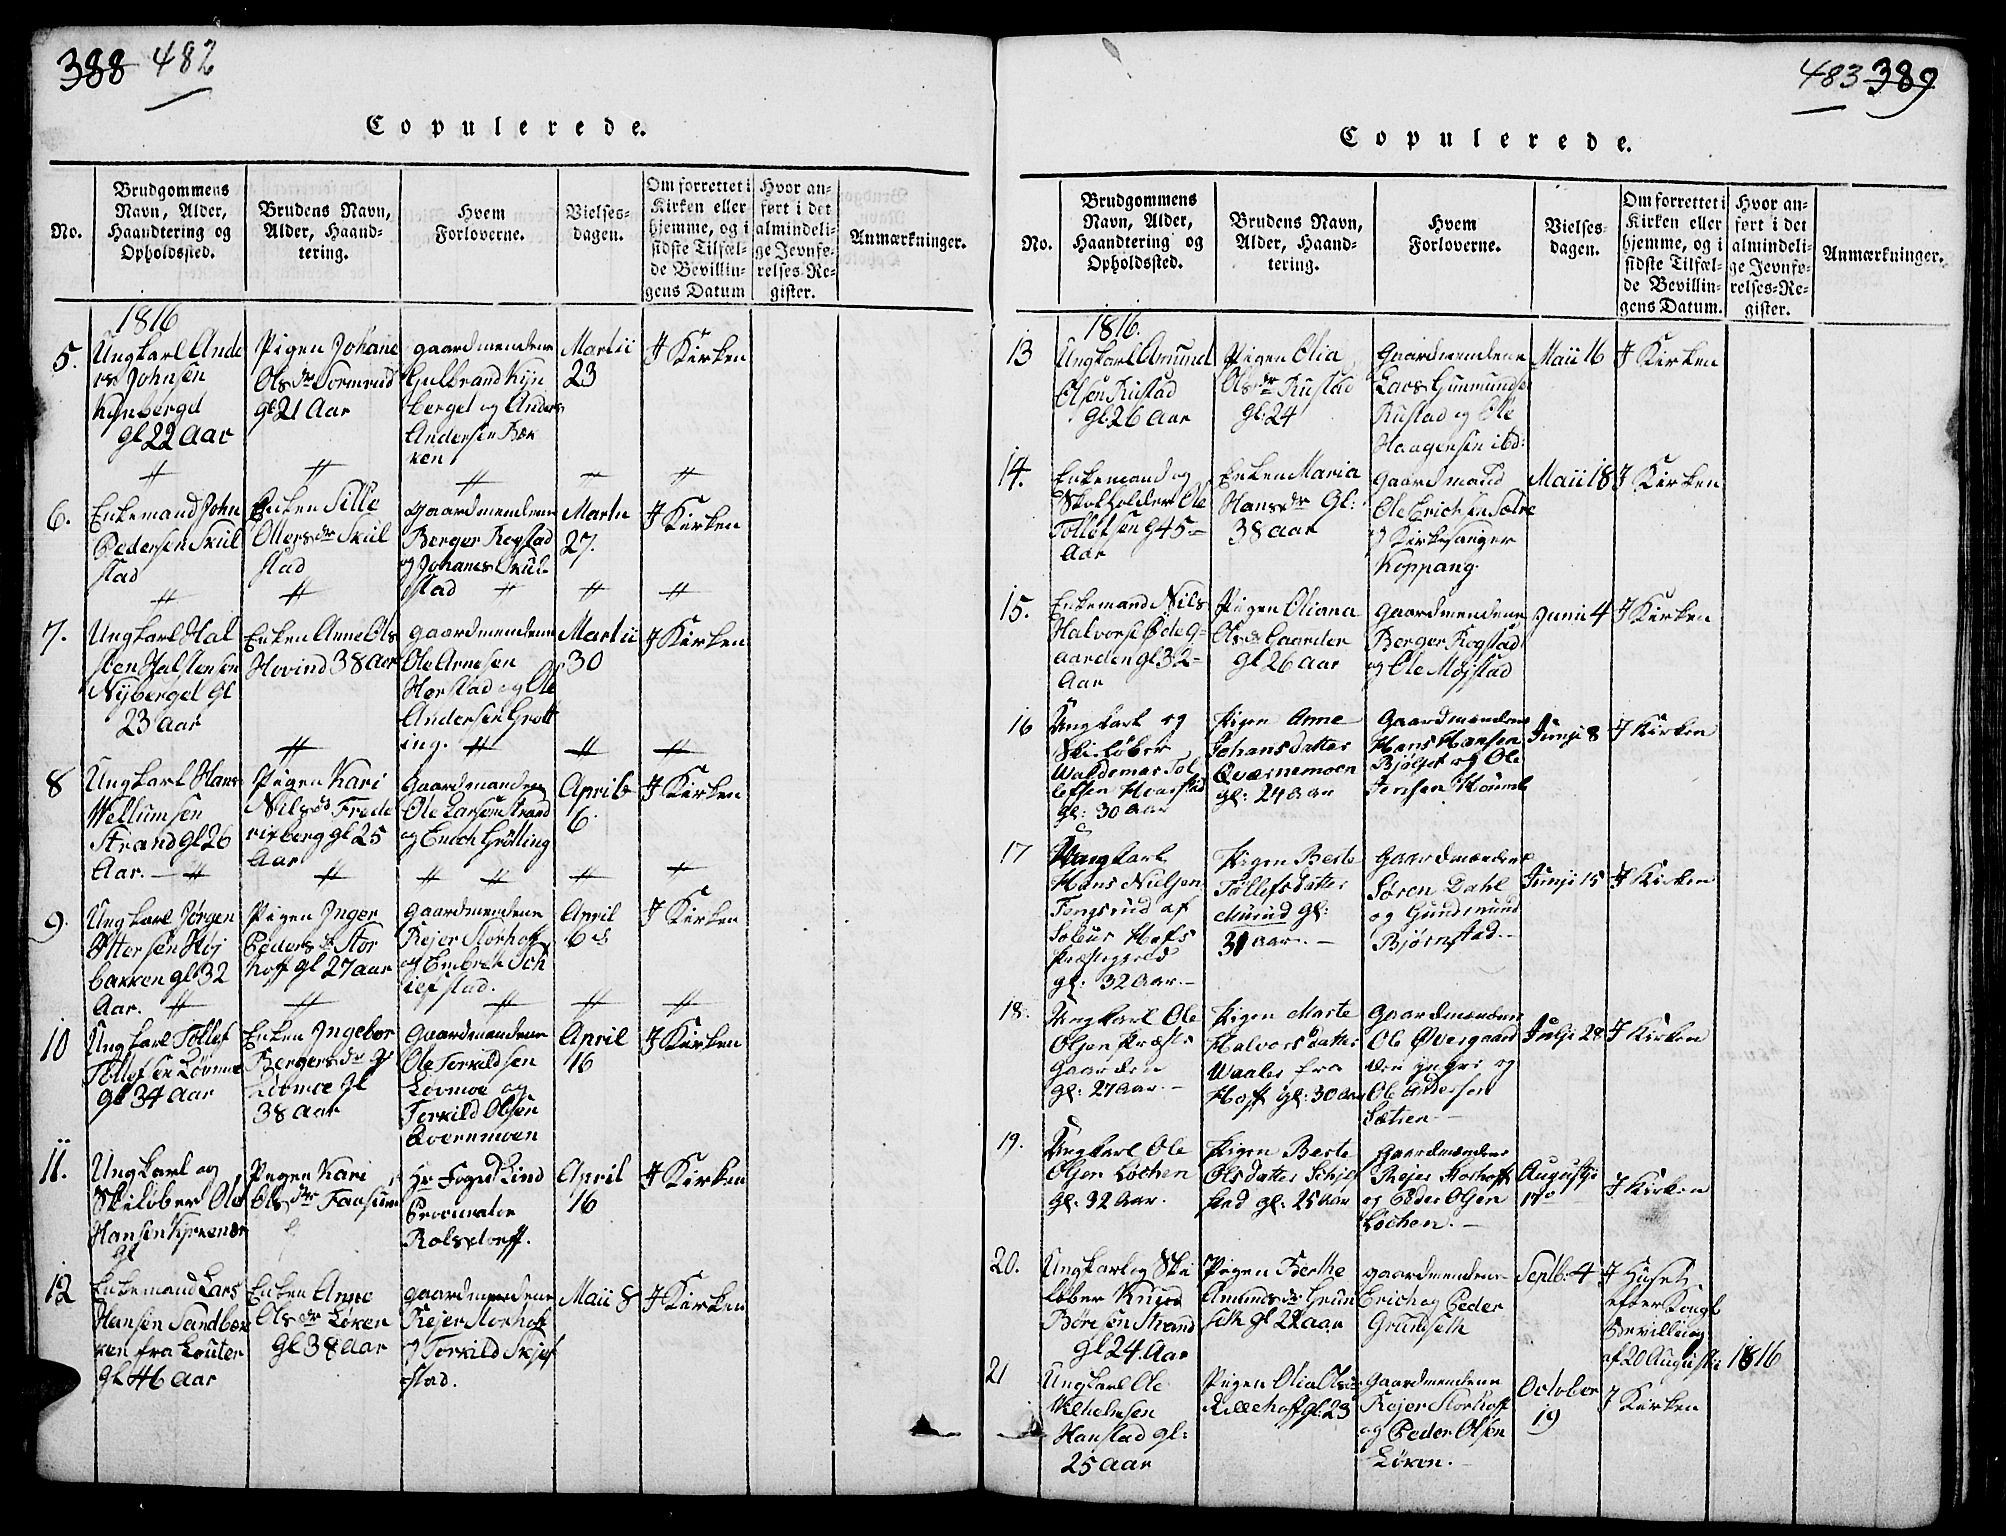 388 482
Copulerede.
No.
Brudgommens
Navn, Alder,
Haandtering og
Opholdssted.
Brudens Navn,
Alder, Haand-
tering.
Hvem
Forloverne.
Vielses-
dagen.
Om forrettet i
Kirken eller
hjemme, og i
sidste Tilfæl-
de Bevillin-
gens Datum
Hvor an-
ført i det
almindeli-
ge Jevnfø-
relses-Re-
gister.
Anmærkninger.
1816
5.
Ungkarl Ande
rs Johnsen
Kynberget
gl 22 Aar
Pigen Johane
Olsdr Sormrud
gl 21 Aar
gaardmendene
Gulbrand Kyn
berget og Anders
Andersen Bæk
ken
Martii
23
I Kirken
6.
Enkemand John
Pedersen Skul
stad
Enken Sille
Ollersdr Skul
stad
gaardmendene
Berger Rogstad
og Johanes Skul
stad
Martii
27.
I Kirken
7.
Ungkarl Hal
sten Halstensen
Nyberget gl
23 Aar
Enken Anne Ols
Hovind 38 Aar
gaardmendene
Ole Arnesen
Horstad og Ole
Andersen Grøtt
ing.
Martii
30
I Kirken
8
Ungkarl Hans
Wellumsen
Strand gl 26
Aar.
Pigen Kari
Nilsd. Frede
rixberg gl 25
Aar
Gaardmandene
Ole Larsen Strand
og Enoch Grøtting
Aprile
6.
I Kirken
9.
Ungkarl Jørgen
Ottersen Høj
bakken gl 32
Aar.
Pigen Inger
Pedersdr Stor
hoff gl 27 aar
Gaardmendene
Rejer Storhoff
og Embret Sch
iefstad.
April
6
I Kirken
10
Ungkarl Tollef
Tollefsen Løvmoe
gl 34 Aar
Enken Ingebor
Bergersdr gl
Løvmoe gl
38 Aar
Gaardmandene
Ole Torkildsen
Løvmoe og
Torkild Olsen
Qvernmoen
April
16
I Kirken
11.
Ungkarl og
Skiløber Ole
Hansen
gl
Pigen Kari
Olsdr Faasum
Hr Foged Lind
Procurator
Rolsdorff.
April
16
I Kirken
12
Enkemand Lars
Hansen Sandbæk
ken fra Louter
gl 46 aar
Enken Anne
Olsdr Løken
gl 38 Aar
gaardmendene
Rejer Storhoff
og Torkild Skjef
stad.
Maii 8
I Kirken
483 389
Copulerede.
No.
Brudgommens
Navn, Alder,
Haandtering og
Opholdssted.
Brudens Navn,
Alder, Haand-
tering.
Hvem
Forloverne.
Vielses-
dagen.
Om forrettet i
Kirken eller
hjemme, og i
sidste Tilfæl-
de Bevillin-
gens Datum.
Hvor an-
ført i det
almindeli-
ge Jevnfø-
relses-Re-
gister.
Anmærkninger.
1816.
13
Ungkarl Amund
Olsen Rustad
gl 26 Aar
Pigen Olia
Olsdr Rustad
gl: 24
Gaardmendene
Lars Gunmunds
Rustad og Ole
Haagensen ibd:
Maii 16
I Kirken
14.
Enkemand og
Skolholder Ole
Tollefsen g 45
Aar
Enken Maria
Hansdr Gl:
38 aar
Gaardmand
Ole Erichsen Sætre
og Kirkesanger
Koppang.
Maii 18
I Kirken
15.
Enkemand Nils
Halvorse Ødeg-
aarden gl 32-
Aar
Pigen Oliana
Olsd Gaarder
gl 26 aar
Gaardmendene
Berger Rogstad
og Ole Møystad
Junii 4
I Kirken
16
Ungkarl og
Skieløber
Waldemar Tol
lefsen Hoerstad
gl: 30 Aar
Pigen Anne
Johansdatter
Qværnemoen
gl: 24 Aar
Gaardmændene
Hans Hansen
Bjølset og Ole
Jensen
Junji 8
I Kirken
17
Ungkarl
Hans Nielsen
Tengsrud af
Solør Hofs
Præstegield
gl: 32 Aar.-
Pigen Berte
Tollefsdatter
Murud gl:
31 Aar.-
Gaardmændene
Søren Dahl
og Gundmund
Bjørnstad.-
Junji 15
I Kirken
18.
Ungkarl Ole
Olsen Præste
Gaarden
gl: 27 Aar.-
Pigen Marte
Halvorsdatter
Waaler fra
Hoff gl: 30 Aar
Gaardmændene
Ole Øvergaard
den yngre og
Ole Andersen
Sætren.-
Julji 28
I Kirken
19.
Ungkarl Ole
Olsen Løchen
gl: 32 Aar.
Pigen Berte
Olsdatter Schjef
stad gl: 25 Aar
Gaardmændene
Rejer Storhoff
og Peder Olsen
Løchen.-
Augustji
17
I Kirken
20.
Ungkarl og Ski
løber Knud
Børesen Strand
gl 24. Aar
Pigen Berthe
Amundsdr Grun
seth gl 22 aar
gaardmendene
Erich og Peder
Grundseth
Septb: 4
I Huset
efter Kongl
Bevilling
af 20 Augusti 1816
21
Ungkarl Ole
Vilhelmsen
Hanstad gl:
25 Aar
Pigen Olia Olsdr
Killehoff gl: 23
Gaardmendene
Rejer Storhoff
og Peder Olsen
Løken.-
October
19
I Kirken